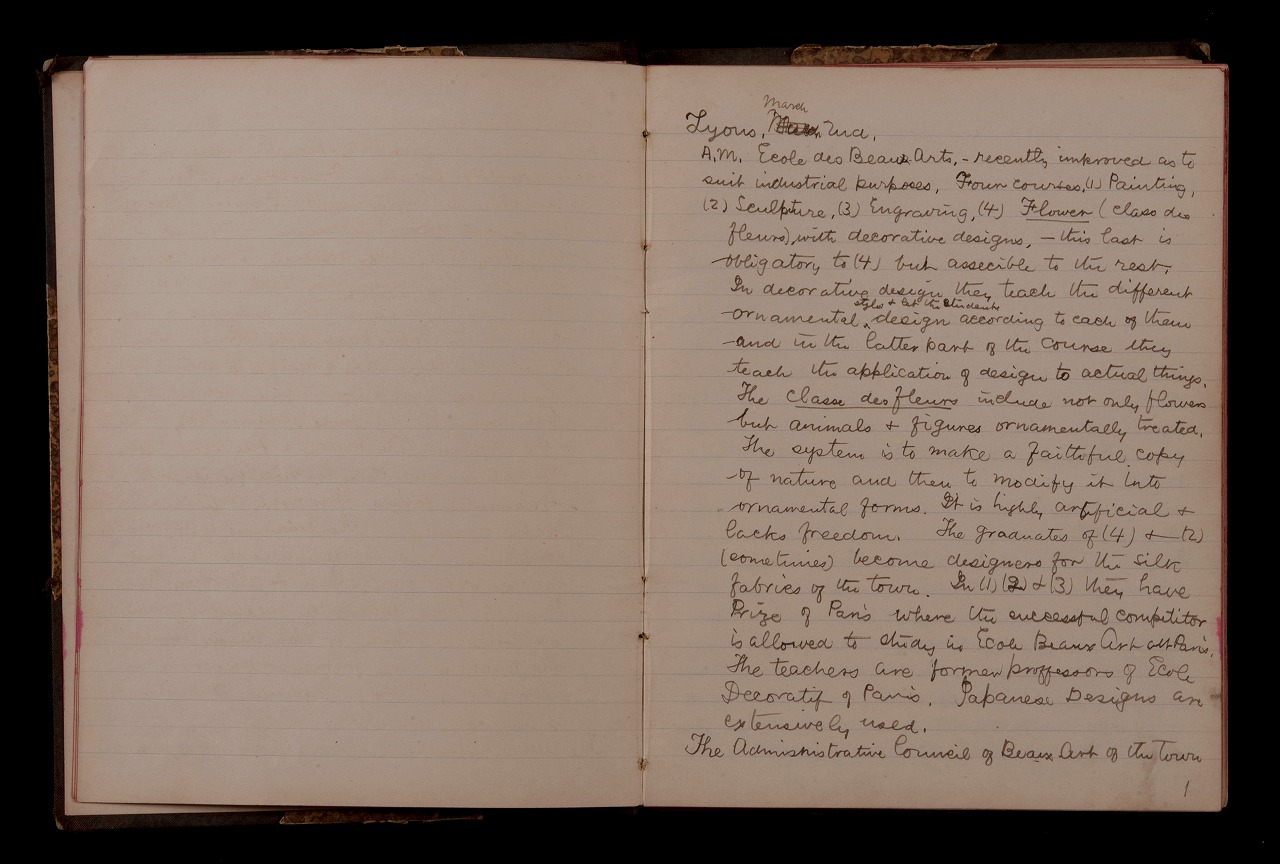 March
Lyons, 2nd.
A.M. Ecole des Beaux Arts, - recently improved as to
suit industrial purposes. Four courses, (1) Painting,
(2) Sculpture, (3) Engraving, (4) Flower (class des
fleurs), with decorative designs, — this last is
obligatory to (4) but assecible to the rest.
In decorative design they teach the different
styles & let the students
ornamental design according to each of them
and in the latter part of the course they
teach the application of design to actual things.
The classe des fleurs include not only flowers
but animals & figures ornamentally treated.
The system is to make a faithful copy
of nature and then to modify it into
ornamental forms. It is highly artificial &
lacks freedom. The graduates of (4) & (2)
(sometimes) become designers for the silk
fabrics of the town. In (1) (2) & (3) they have
Prize of Paris where the successful competitor
is allowed to study in Ecole Beaux Art att Paris.
The teachers are former proffessors of Ecole
Decoratif of Paris. Japanese Designs are
extensively used.
The Administrative Council of Beaux Art of the town
1